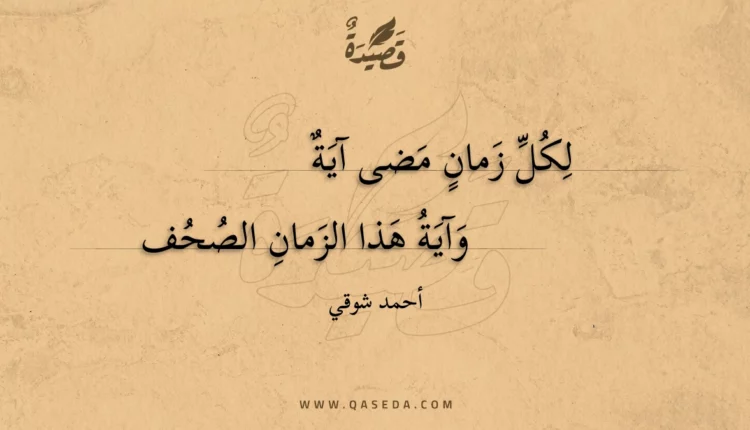 قَصِيْدَةٌ
لِكُلِّ زَمانٍ مَضى آيَةٌ
وَآيَةُ هَذا الزَمانِ الصُحُف
أحمد شوقي
WWW.QASEDA.COM